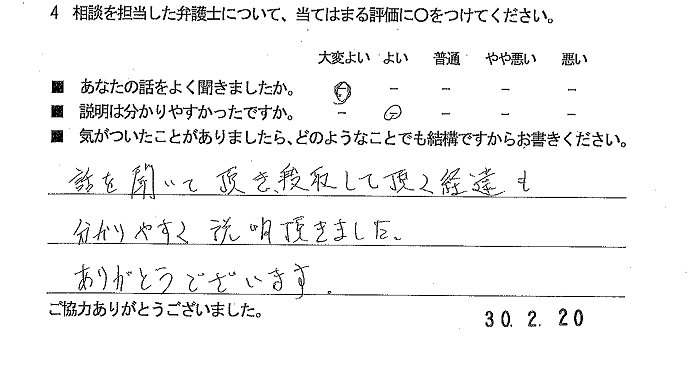 4 相談を担当した弁護士について、当てはまる評価に○をつけてください。
大変よい よい 普通 やや悪い 悪い
■ あなたの話をよく聞きましたか。 ○ - - - -
■ 説明は分かりやすかったですか。 - ○ - - -
■ 気がついたことがありましたら、どのようなことでも結構ですからお書きください。
話を聞いて頂き、段取して頂く経違も
分かりやすく説明頂きました。
ありがとうございます.
ご協力ありがとうございました。
30. 2. 20